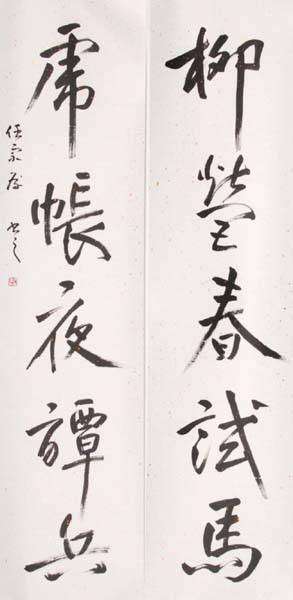 柳營春試馬
虎帳夜譚兵
任宗 书之